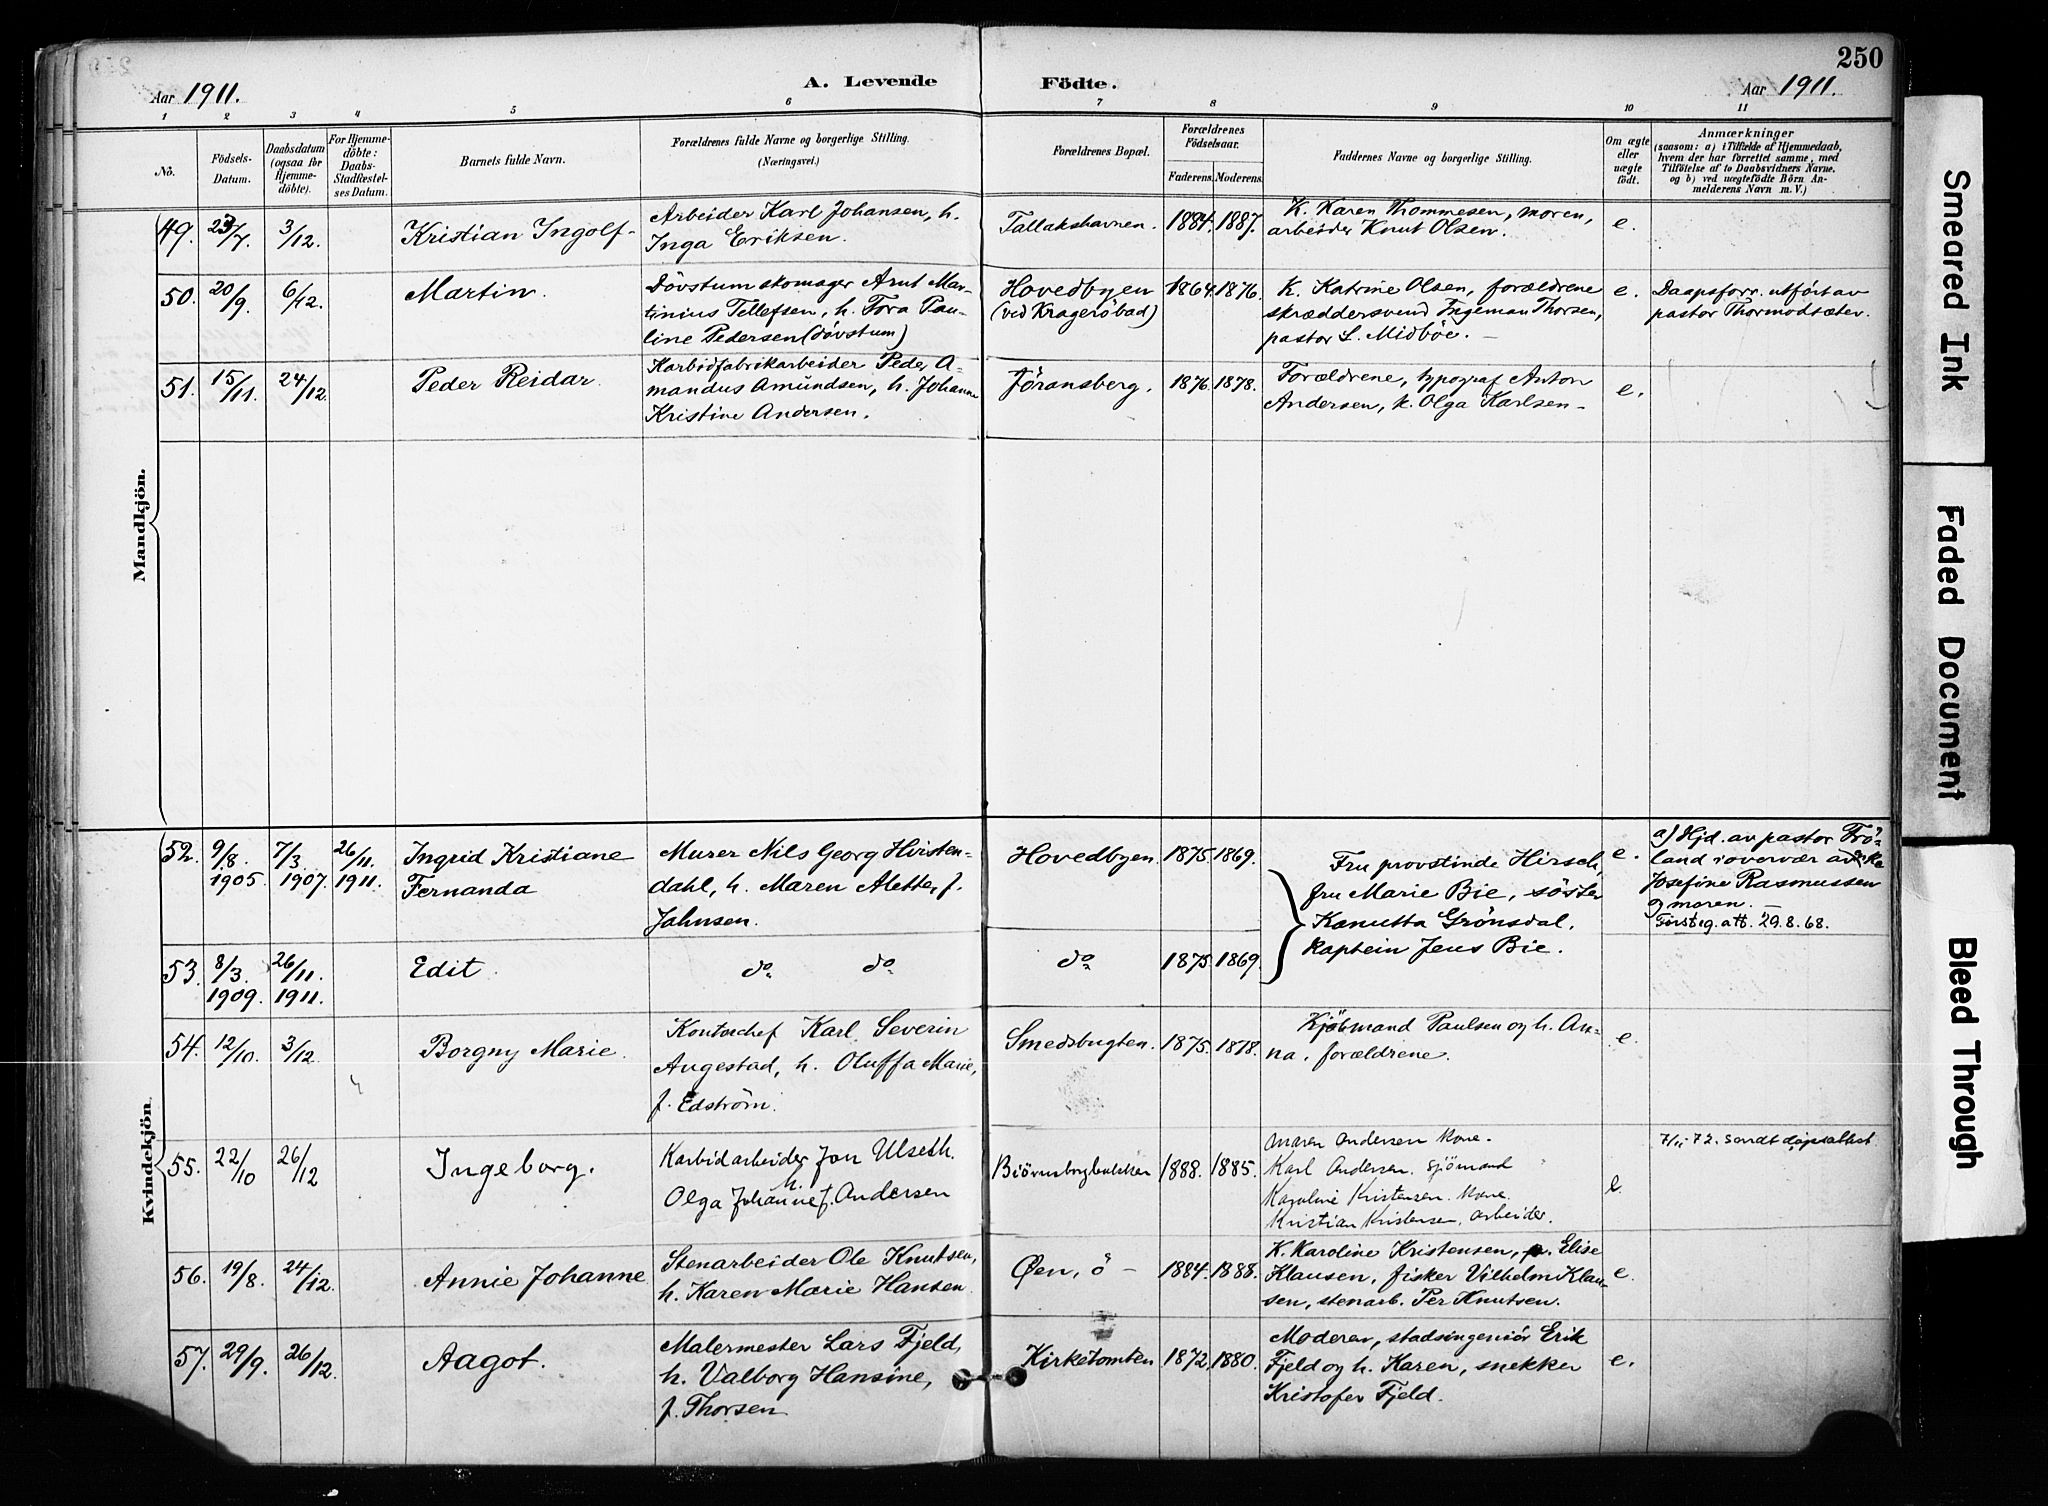 250
Aar 1911.
A. Levende Födte.
Aar 1911.
1 2 3 4 5 6 7 8 9 10 11
No.
Födsels-
Datum.
Daabsdatum
(ogsaa för
Hjemme-
döbte).
For Hjemme-
döbte:
Daabs-
Stadfæstel-
ses Datum.
Barnets fulde Navn.
Forældrenes fulde Navne og borgerlige Stilling.
(Næringsvei.)
Forældrenes Bopæl.
Forældrenes
Födselsaar.
Faderens. Moderens.
Faddernes Navne og borgerlige Stilling.
Om ægte
eller
uægte
födt.
Anmærkninger
(saasom: a) i Tilfælde af Hjemmedaab,
hvem der har forrettet samme, med
Tilföielse af to Daabsvidners Navne,
og b) ved uægtefödte Börn An-
melderens Navn m. V.)
Mandkjön.
49. 23/7. 3/12. Kristian Ingolf
Arbeider Karl Johansen, h.
Inga Eriksen.
Tallakshavnen. 1884. 1887.
K. Karen Thommesen, moren,
arbeider Knut Olsen.
e.
50. 20/9. 6/12. Martin.
Dövstum skomager Arnt Mar-
tinius Tellefsen, h. Tora Pau-
line Pedersen (dövstum)
Hovedbyen
(ved Kragerö bad)
1864. 1876.
K. Katrine Olsen, forældrene
skræddersvend Ingeman Thorsen,
pastor L. Midböe. -
e.
Daapsforr. utfört av
pastor Thormodsæter.
51. 15/11. 24/12. Peder Reidar.
Karbidfabrikarbeider Peder A-
mandus Amundsen, h. Johanne
Kristine Andersen.
Jöransberg. 1876. 1878.
Forældrene, typograf Anton
Andersen, k. Olga Karlsen -
e.
Kvindekjön.
52. 9/8. 1905. 7/3. 1907. 26/11. 1911.
Ingrid Kristiane
Fernanda
Murer Nils Georg Hvisten-
dahl, h. Maren Alette, f.
Johnsen.
Hovedbyen. 1875. 1869.
Fru provstinde Hirsch,
fru Marie Bie, söster
Kanutta Grönsdal,
kaptein Jens Bie.
e.
a) Hjd. av pastor Frö-
land i overvær av
Josefine Rasmussen
og moren. -
Förste g. att. 29.8.68.
53. 8/3. 1909. 26/11. 1911. Edit.
do do
do 1875. 1869.
54. 12/10. 3/12. Borgny Marie.
Kontorchef Karl Severin
Augestad, h. Oluffa Marie,
f. Edström.
Smedsbugten. 1875. 1878.
Kjöbmand Paulsen og h. An-
na, forældrene.
e.
55. 22/10 26/12 Ingeborg.
Karbidarbeider Jon Ulseth.
h.
Olga Johanne f. Andersen
1888. 1885.
Maren Andersen Kone.
Karl Andersen. Sjömand
Karoline Kristensen. Kone.
Kristian Kristensen, arbeider.
e.
7/11-72. Sendt dåpsattest
56. 19/8. 24/12. Annie Johanne
Stenarbeider Ole Knutsen,
h. Karen Marie Hansen.
Øen, ö - 1884. 1888.
K. Karoline Kristensen, p. Elise
Klausen, fisker Vilhelm Klau-
sen, stenarb. Per Knutsen.
e.
57. 29/9. 26/12. Aagot.
Malermester Lars Fjeld,
h. Valborg Hansine,
f. Thorsen
Kirketomten 1872. 1880.
Moderen, stadsingeniör Erik
Fjeld og h. Karen, snekker
Kristofer Fjeld.
e.
Smeared Ink
Faded Document
Bleed Through